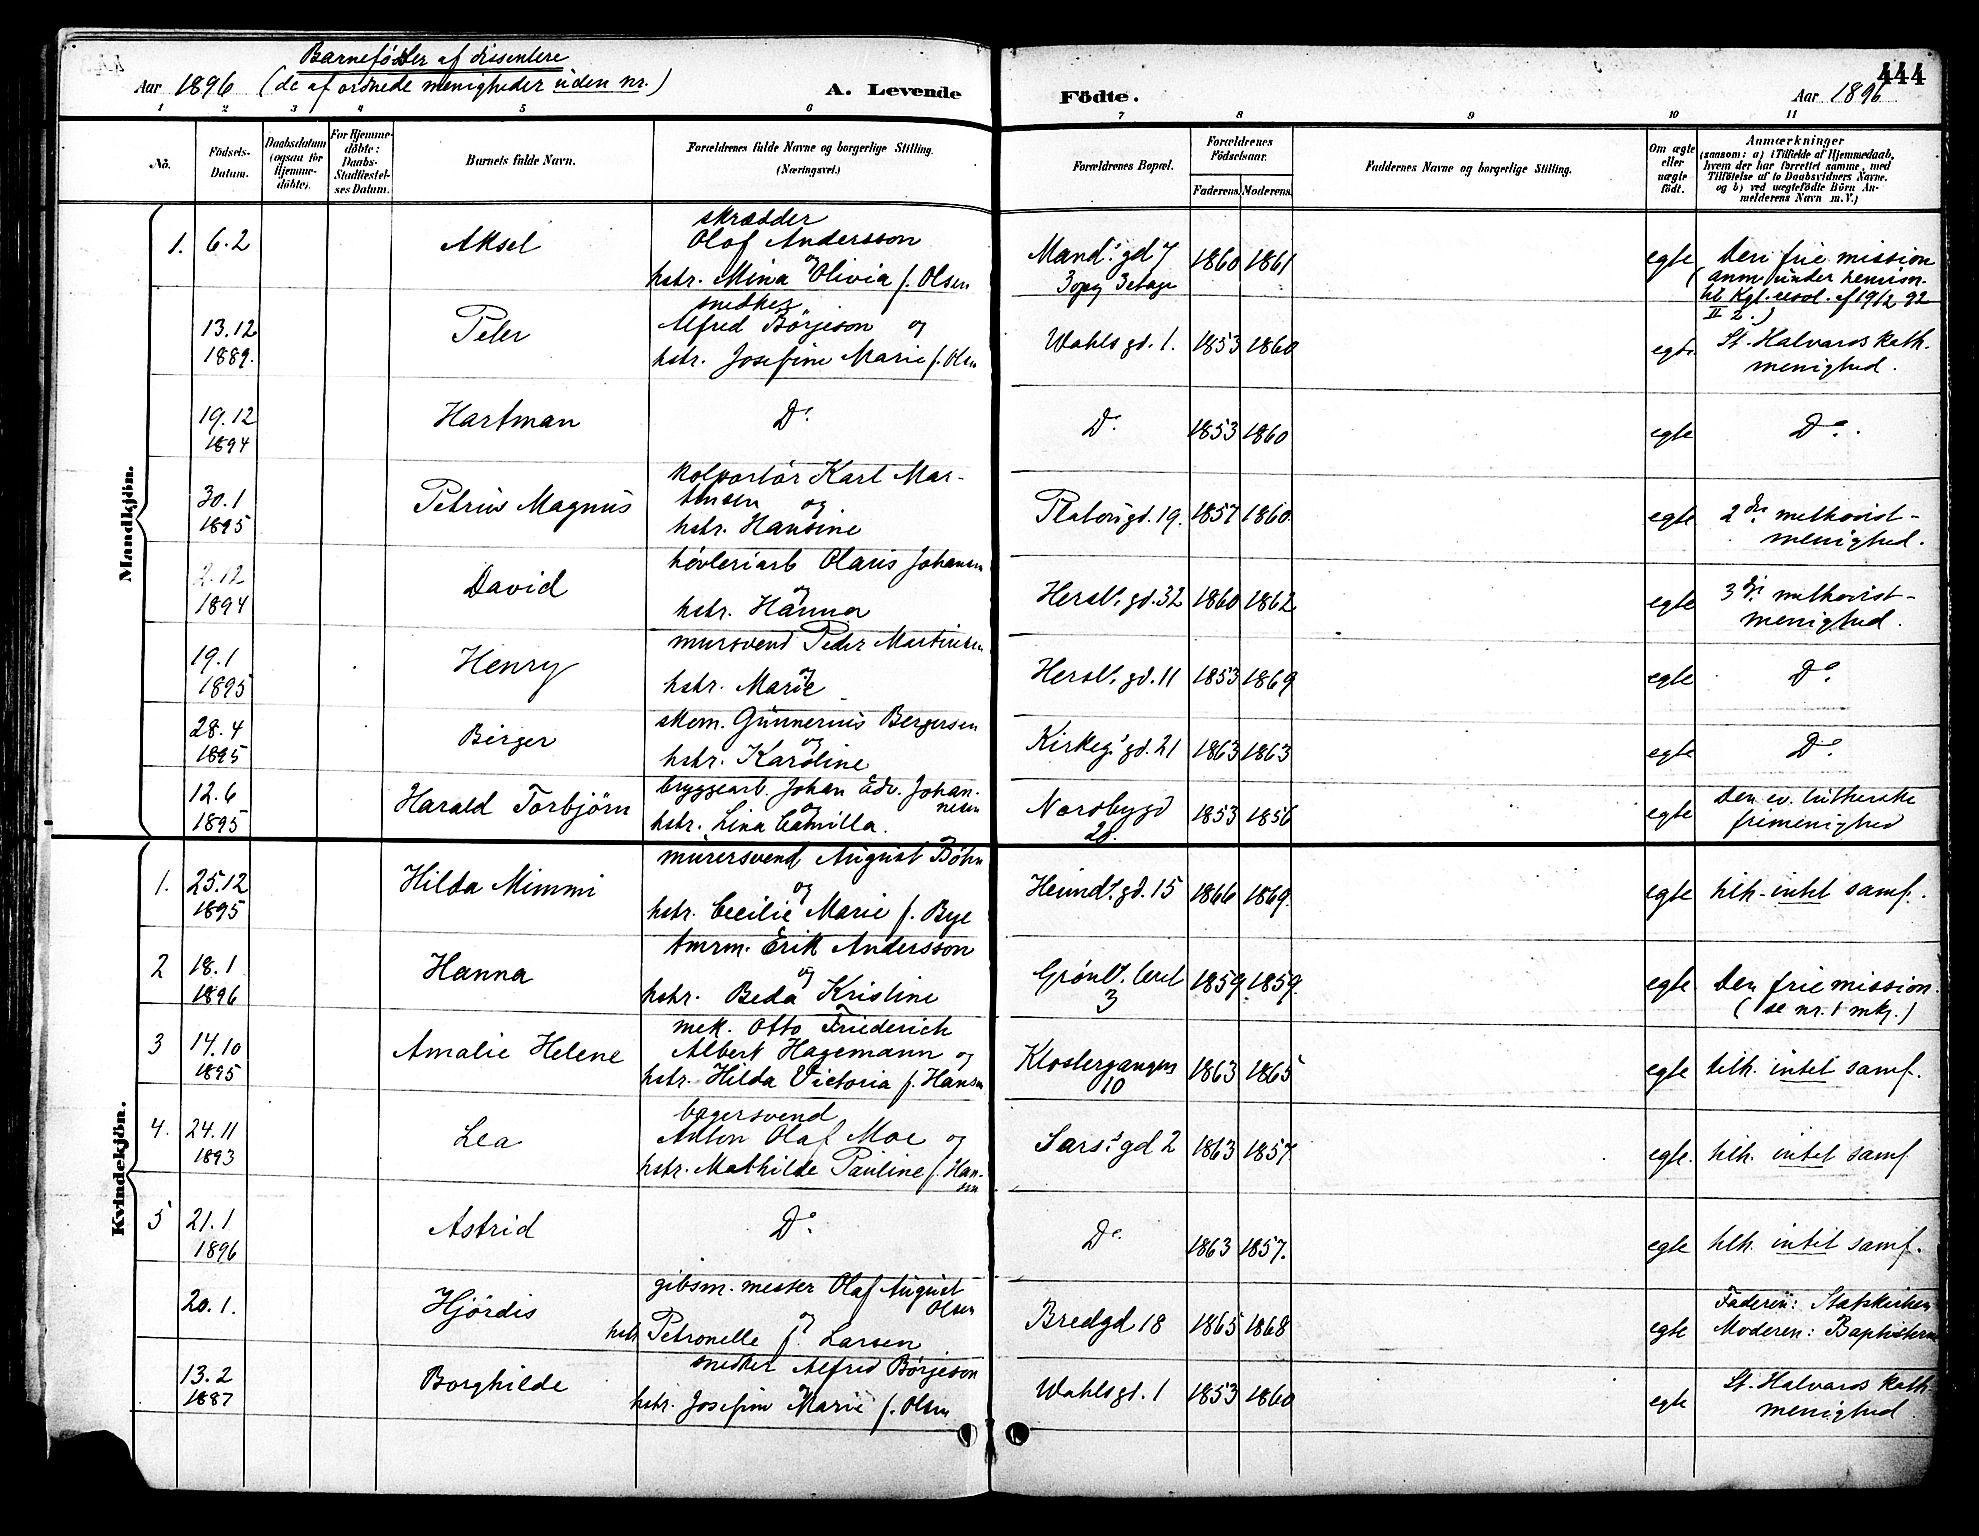 Barnefödsler af dissentere
Aar 1896 (de af ordnede menigheder uden nr.)
A. Levende
Födte.
444
Aar 1896
1 2 3 4 5 6 7 8 9 10 11
No.
Födsels-Datum.
Daabsdatum (ogsaa for Hjemme-döbte).
For Hjemme-döbte: Daabs-Stadfæstel-ses Datum.
Barnets fulde Navn.
Forældrenes fulde Navne og borgerlige Stilling. (Næringsvei.)
Forældrenes Bopæl.
Forældrenes Födselsaar.
Faderens. Moderens.
Faddernes Navne og borgerlige Stilling.
Om ægte eller uægte födt.
Anmærkninger
(saasom: a) i Tilfælde af Hjemmedaab, hvem der har forrettet samme, med Tilföielse af to Daabsvidners Navne. og b) ved uægtefödte Börn An-melderens Navn m.V.)
Mandkjön.
1. 6.2 Aksel
skrædder
Olaf Andersson
og
hstr. Mina Olivia f. Olsen
Mand.s gd 7
3 opg 3 etage
1860 1861 egte
Den frie mission
(anm. under henvisn.
til Kgl. resol. af 19/2 92
II 2.)
13.12
1889. Peter
snedker
Alfred Börjeson og
hstr. Josefine Marie f. Olsen
Wahls gd. 1. 1853 1860 egte
St. Halvards kath.
menighed.
19.12
1894 Hartman Do. Do. 1853 1860 egte Do.
30.1
1895 Petrus Magnus
kolportör Karl Mar-
tinsen og
hstr. Hansine
Platousgd. 19. 1857 1860. egte
2den methodist-
menighed.
2.12
1894 David
hövleriarb Olaus Johansen
og
hstr. Hanna
Hersl. gd. 32 1860 1862 egte
3die methodist-
menighed.
19.1
1895 Henry
mursvend Peder Martinsen
og
hstr. Marie
Hersl. gd. 11 1853 1869 egte Do.
28.4
1895 Birger
skom. Gunnerius Bergersen
og
hstr. Karoline
Kirkeg.s gd. 21 1863 1863 egte Do.
12.6
1895 Harald Torbjörn
bryggearb. Johan Edv. Johan-
nesen
og
hstr. Lina Camilla.
Nordbygd
28. 1853 1856 egte
Den ev. lutherske
frimenighed
Kvindekjön.
1. 25.12
1895 Hilda Mimmi
murersvend August Böhn
og
hstr. Cecilie Marie f. Bye
Heimd.s gd. 15 1866 1869. egte tilh. intet samf.
2 18.1
1896 Hanna
tmrm. Erik Andersson
og
hstr. Beda Kristine
Grönl. Leret
3 1859 1859. egte
Den frie mission.
(se nr. 1 mkj.)
3 14.10
1895 Amalie Helene
mek. Otto Friederich
Albert Hagemann og
hstr. Hilda Victoria f. Hansen
Klostergangen
10 1863 1865 egte tilh. intet samf.
4. 24.11
1893 Lea
bagersvend
Anton Olaf Moe og
hstr. Mathilde Pauline f. Han-
sen
Sars.s gd 2 1863 1857. egte. tilh. intet samf
5 21.1
1896 Astrid Do. Do. 1863 1857. egte tilh. intet samf.
20.1. Hjördis
gibsm. mester Olaf August
Olsen
og
hstr. Petronelle f. Larsen
Bredgd 18 1865 1868 egte
Faderen: Statskirken
Moderen: Baptisterne
13.2
1887 Borghilde
snedker Alfred Börjeson
og
hstr. Josefine Marie f. Olsen
Wahlsgd. 1 1853 1860 egte
St. Halvards kath.
menighed